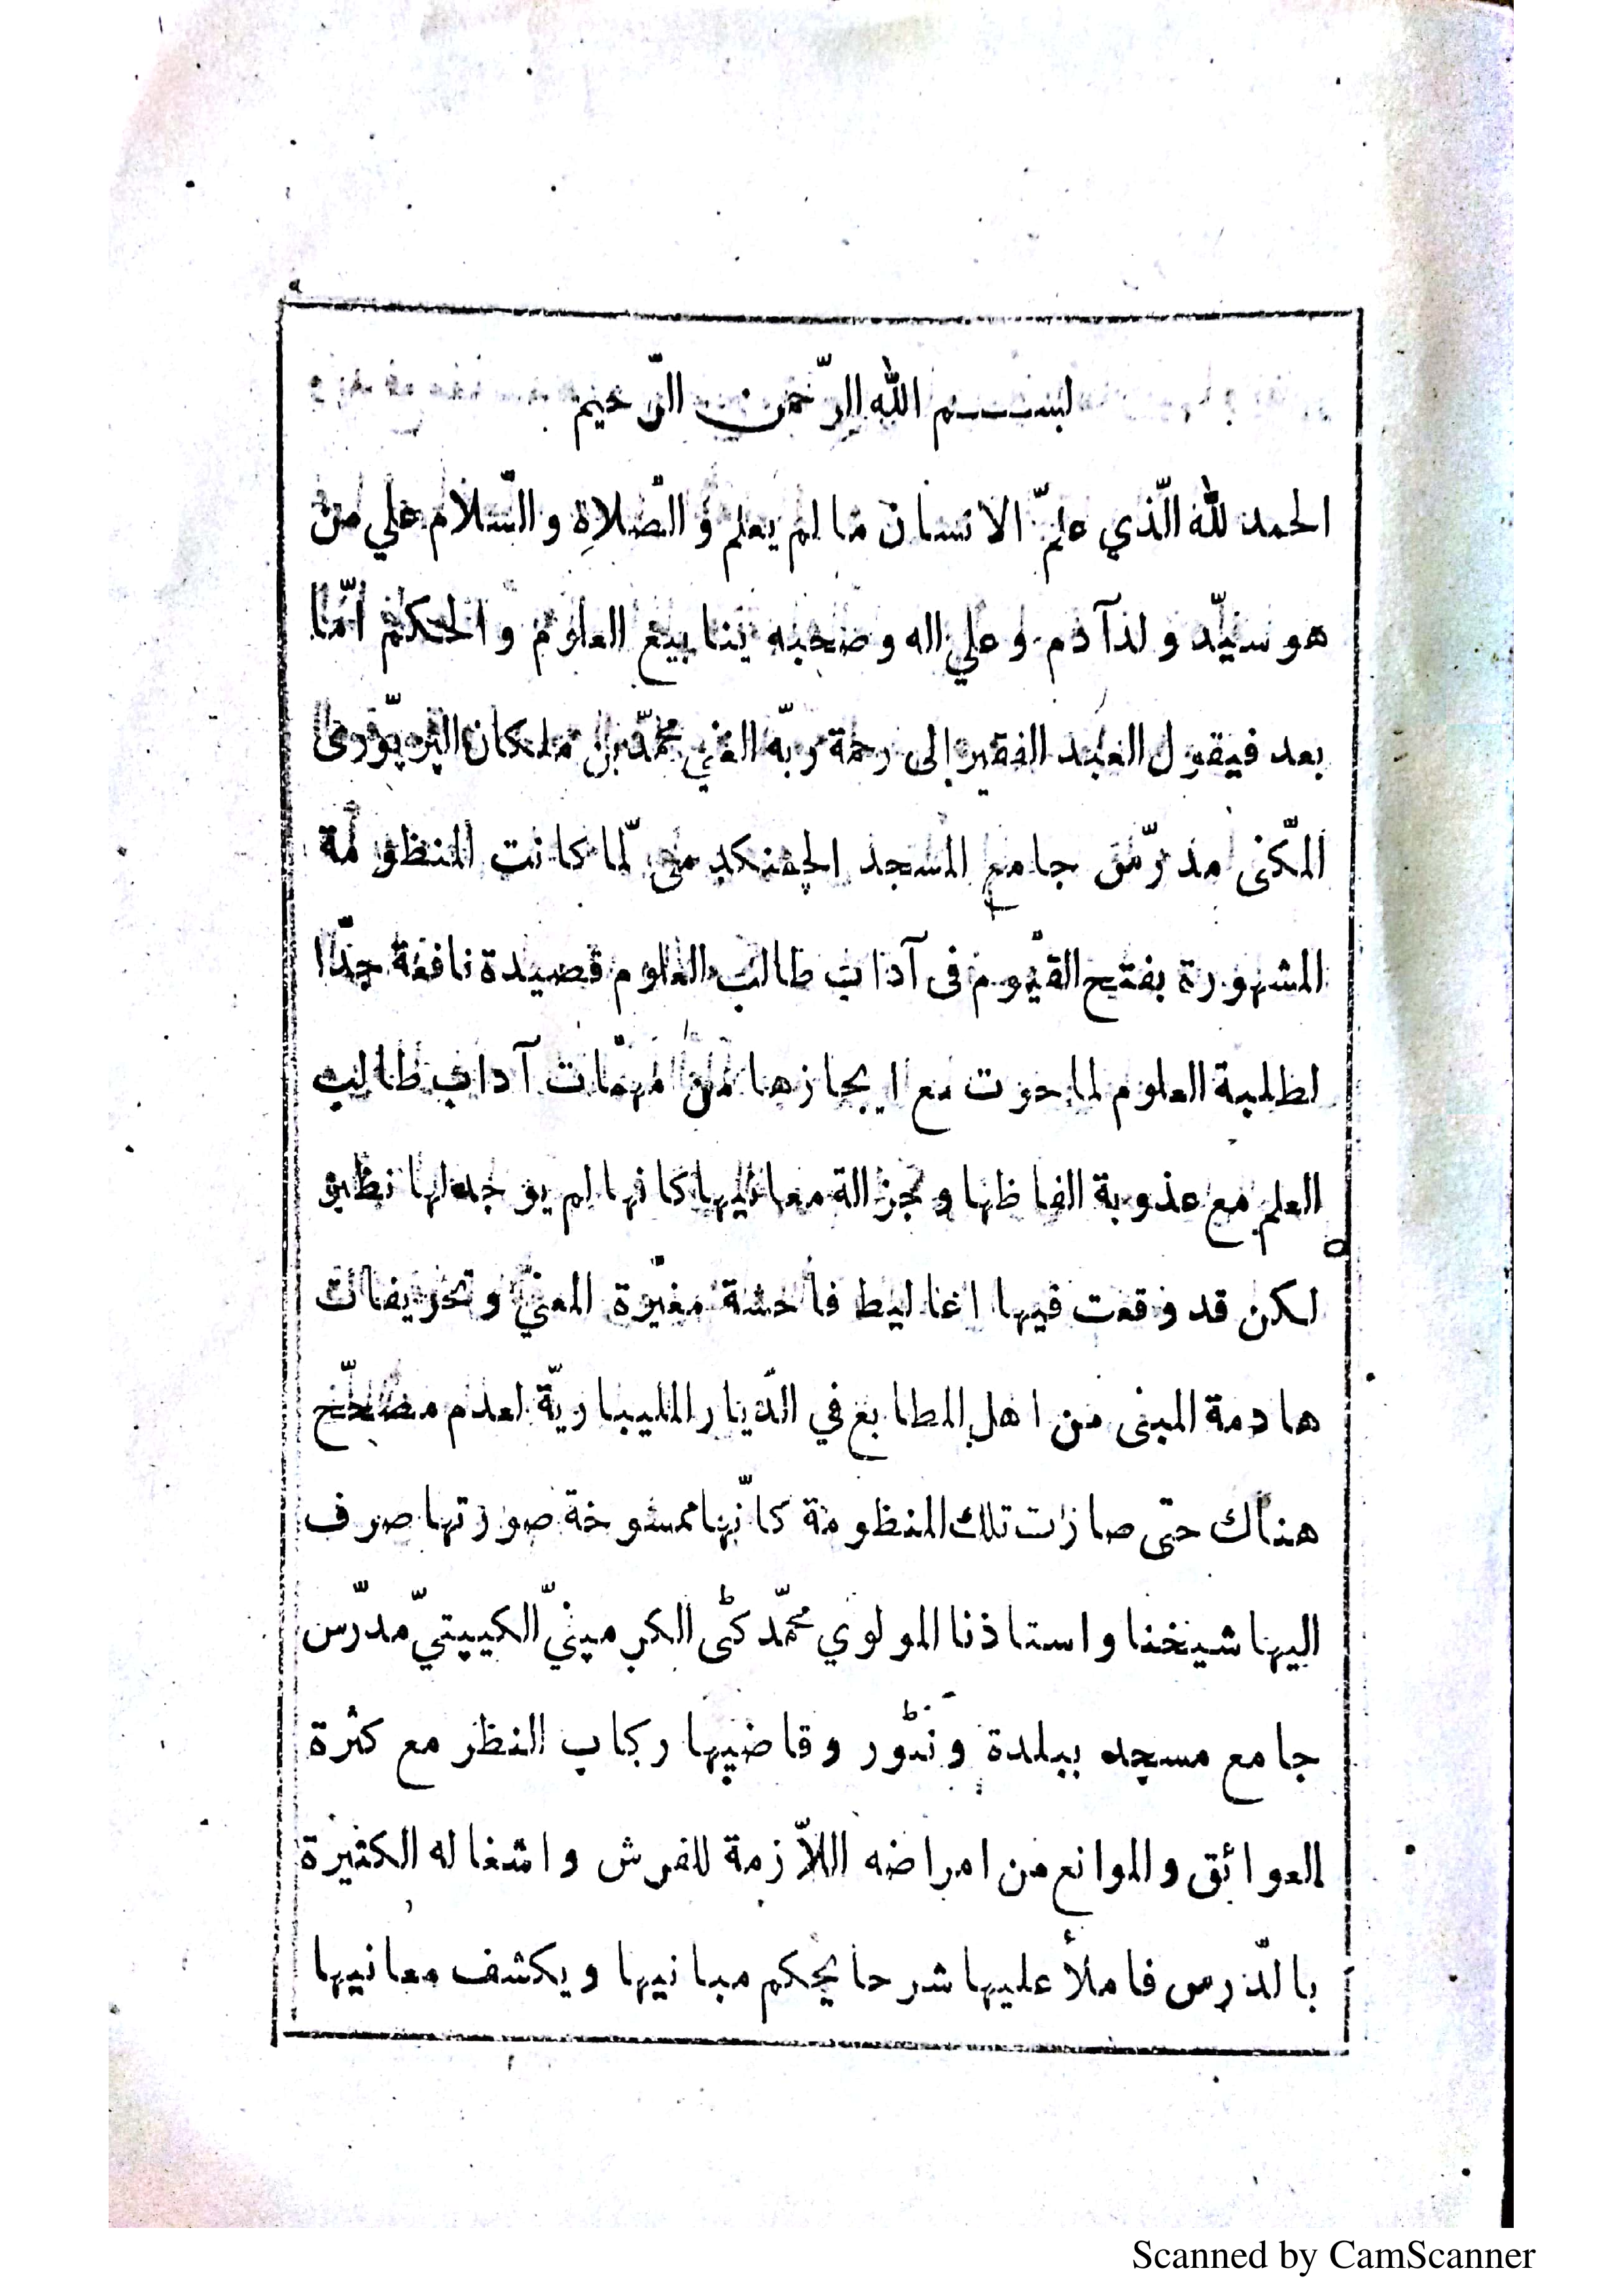 بســـــم الله الرّحمن الرّحيم
الحمد لله الّذي علّم الانسان ما لم يعلم و الصّلاة و السّلام علي من
هو سيّد ولد آدم و علي اله و صحبه ينابيع العلوم و الحكم امّا
بعد فيقول العبد الفقير إلى رحمة ربّه الغني محمّد بن ملكان
المكّنى مدرّس جامع المسجد لمّا كانت المنظومة
المشهورة بفتح القيّوم فى آداب طالب العلوم قصيدة نافعة جدّا
لطلبة العلوم لما حوت مع ايجازها من مهمّات آداب طالب
العلم مع عذوبة الفاظها و جزالة معانيها كانها لم يوجد لها نظير
لكن قد وقعت فيها اغاليط فاحشة مغيّرة المعنيّ و تحريفات
هادمة المبنى من اهل المطابع في الدّيار المليباريّة لعدم مصحّح
هناك حتى صارت تلك المنظومة كانّها ممسوخة صورتها صرف
اليها شيخنا و استاذنا المولوي محمّد كٹی الكرمپنيّ الكيپتيّ مدرّس
جامع مسجد ببلدة ونٹور و قاضيها ركاب النظر مع كثرة
العوائق و الموانع من امراضه اللّازمة للفرش و اشغاله الكثيرة
بالدّرس فاملأ عليها شرحا يحكم مبانيها و يكشف معانيها
Scanned by CamScanner